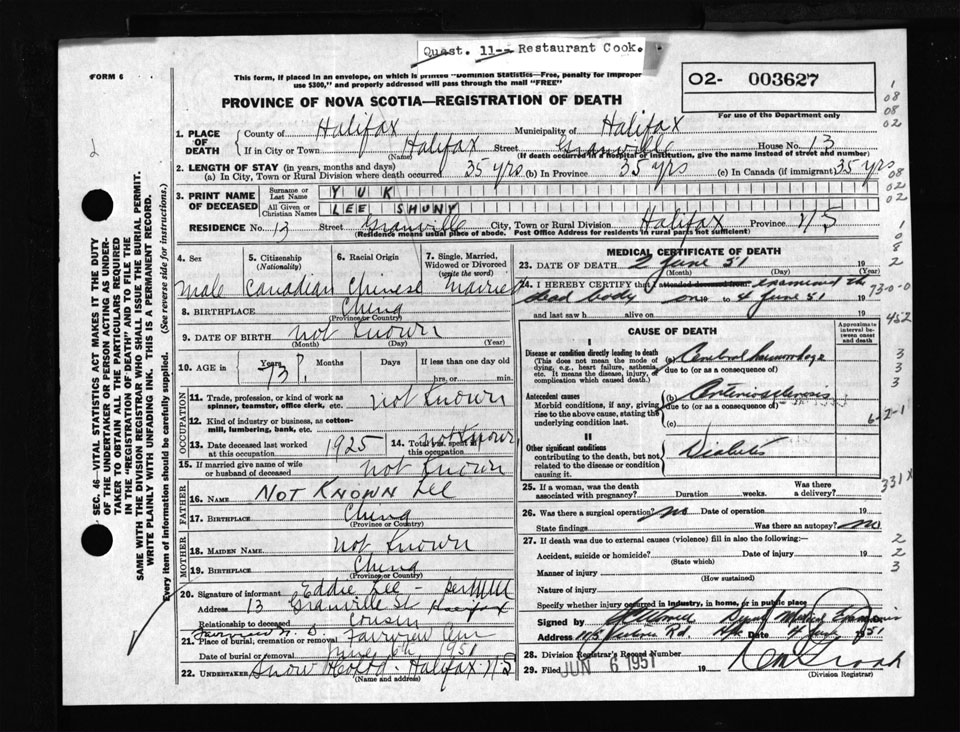 Quest. 11-- Restaurant Cook.
FORM 6
This form, if placed in an envelope, on which is printed "Dominion Statistics—Free, penalty for improper
use $300," and properly addressed will pass through the mail "FREE"
PROVINCE OF NOVA SCOTIA—REGISTRATION OF DEATH
02- 003627
For use of the Department only
SEC. 46—VITAL STATISTICS ACT MAKES IT THE DUTY
OF THE UNDERTAKER OR PERSON ACTING AS UNDER-
TAKER TO OBTAIN ALL THE PARTICULARS REQUIRED
IN THE "REGISTRATION OF DEATH" AND TO FILE THE
SAME WITH THE DIVISION REGISTRAR WHO SHALL ISSUE THE BURIAL PERMIT.
WRITE PLAINLY WITH UNFADING INK. THIS IS A PERMANENT RECORD.
Every item of information should be carefully supplied. (See reverse side for instructions.)
1. PLACE OF DEATH
County of Halifax Municipality of Halifax
If in City or Town Halifax Street Granville House No. 13
(Name) (If death occurred in a hospital or institution, give the name instead of street and number)
2. LENGTH OF STAY (in years, months and days)
(a) In City, Town or Rural Division where death occurred 35 yrs (b) In Province 35 yrs (c) In Canada (if immigrant) 35 yrs
3. PRINT NAME OF DECEASED
Surname or Last Name YUK
All Given or Christian Names LEE SHUNY
RESIDENCE No. 13 Street Granville City, Town or Rural Division Halifax Province N S
(Residence means usual place of abode. Post Office Address for residents in rural parts not sufficient)
4. Sex 5. Citizenship (Nationality) 6. Racial Origin 7. Single, Married, Widowed or Divorced (write the word)
Male Canadian Chinese Married
8. BIRTHPLACE China
(Province or Country)
9. DATE OF BIRTH not Known
(Month) (Day) (Year)
10. AGE in Years Months Days If less than one day
73 hrs. or min.
OCCUPATION
11. Trade, profession, or kind of work as spinner, teamster, office clerk, etc. not Known
12. Kind of industry or business, as cotton-mill, lumbering, bank, etc.
13. Date deceased last worked at this occupation 1925 14. Total yrs. spent in this occupation not Known
15. If married give name of wife or husband of deceased not Known
FATHER
16. NAME NOT KNOWN LEE
17. BIRTHPLACE China
(Province or Country)
MOTHER
18. MAIDEN NAME not Known
19. BIRTHPLACE China
(Province or Country)
20. Signature of informant Eddie Lee - per
Address 13 Granville St Halifax
Relationship to deceased cousin
21. Place of burial, cremation or removal Fairview
Date of burial or removal June 6th 1951
22. UNDERTAKER Snow Halifax N S
(Name and address)
MEDICAL CERTIFICATE OF DEATH
23. DATE OF DEATH 2 June 51 19
(Month) (Day) (Year)
24. I HEREBY CERTIFY that I attended deceased from examined the
dead body on 19 to 4 June 51 19
and last saw h alive on 19
CAUSE OF DEATH
Approximate interval between onset and death
I
Disease or condition directly leading to death
(This does not mean the mode of dying, e.g., heart failure, asthenia, etc. It means the disease, injury, or complication which caused death.)
(a) Cerebral haemorrhage
due to (or as a consequence of)
Antecedent causes
Morbid conditions, if any, giving rise to the above cause, stating the underlying condition last.
(b) Arteriosclerosis
due to (or as a consequence of)
(c)
II
Other significant conditions
contributing to the death, but not related to the disease or condition causing it.
Diabetes
25. If a woman, was the death associated with pregnancy? Duration weeks. Was there a delivery?
26. Was there a surgical operation? no Date of operation 19
State findings Was there an autopsy? no
27. If death was due to external causes (violence) fill in also the following:—
Accident, suicide or homicide? Date of injury 19
(State which)
Manner of injury
(How sustained)
Nature of injury
Specify whether injury occurred in industry, in home, or in public place
Signed by Medical Examiner
Address Rd. Date 4 1951
28. Division Registrar's Record Number
29. Filed JUN 6 1951 19
(Division Registrar)
1
08
08
02
08
02
02
2
73-0-0
452
3
3
3
6-2-1
331X
2
2
3
3